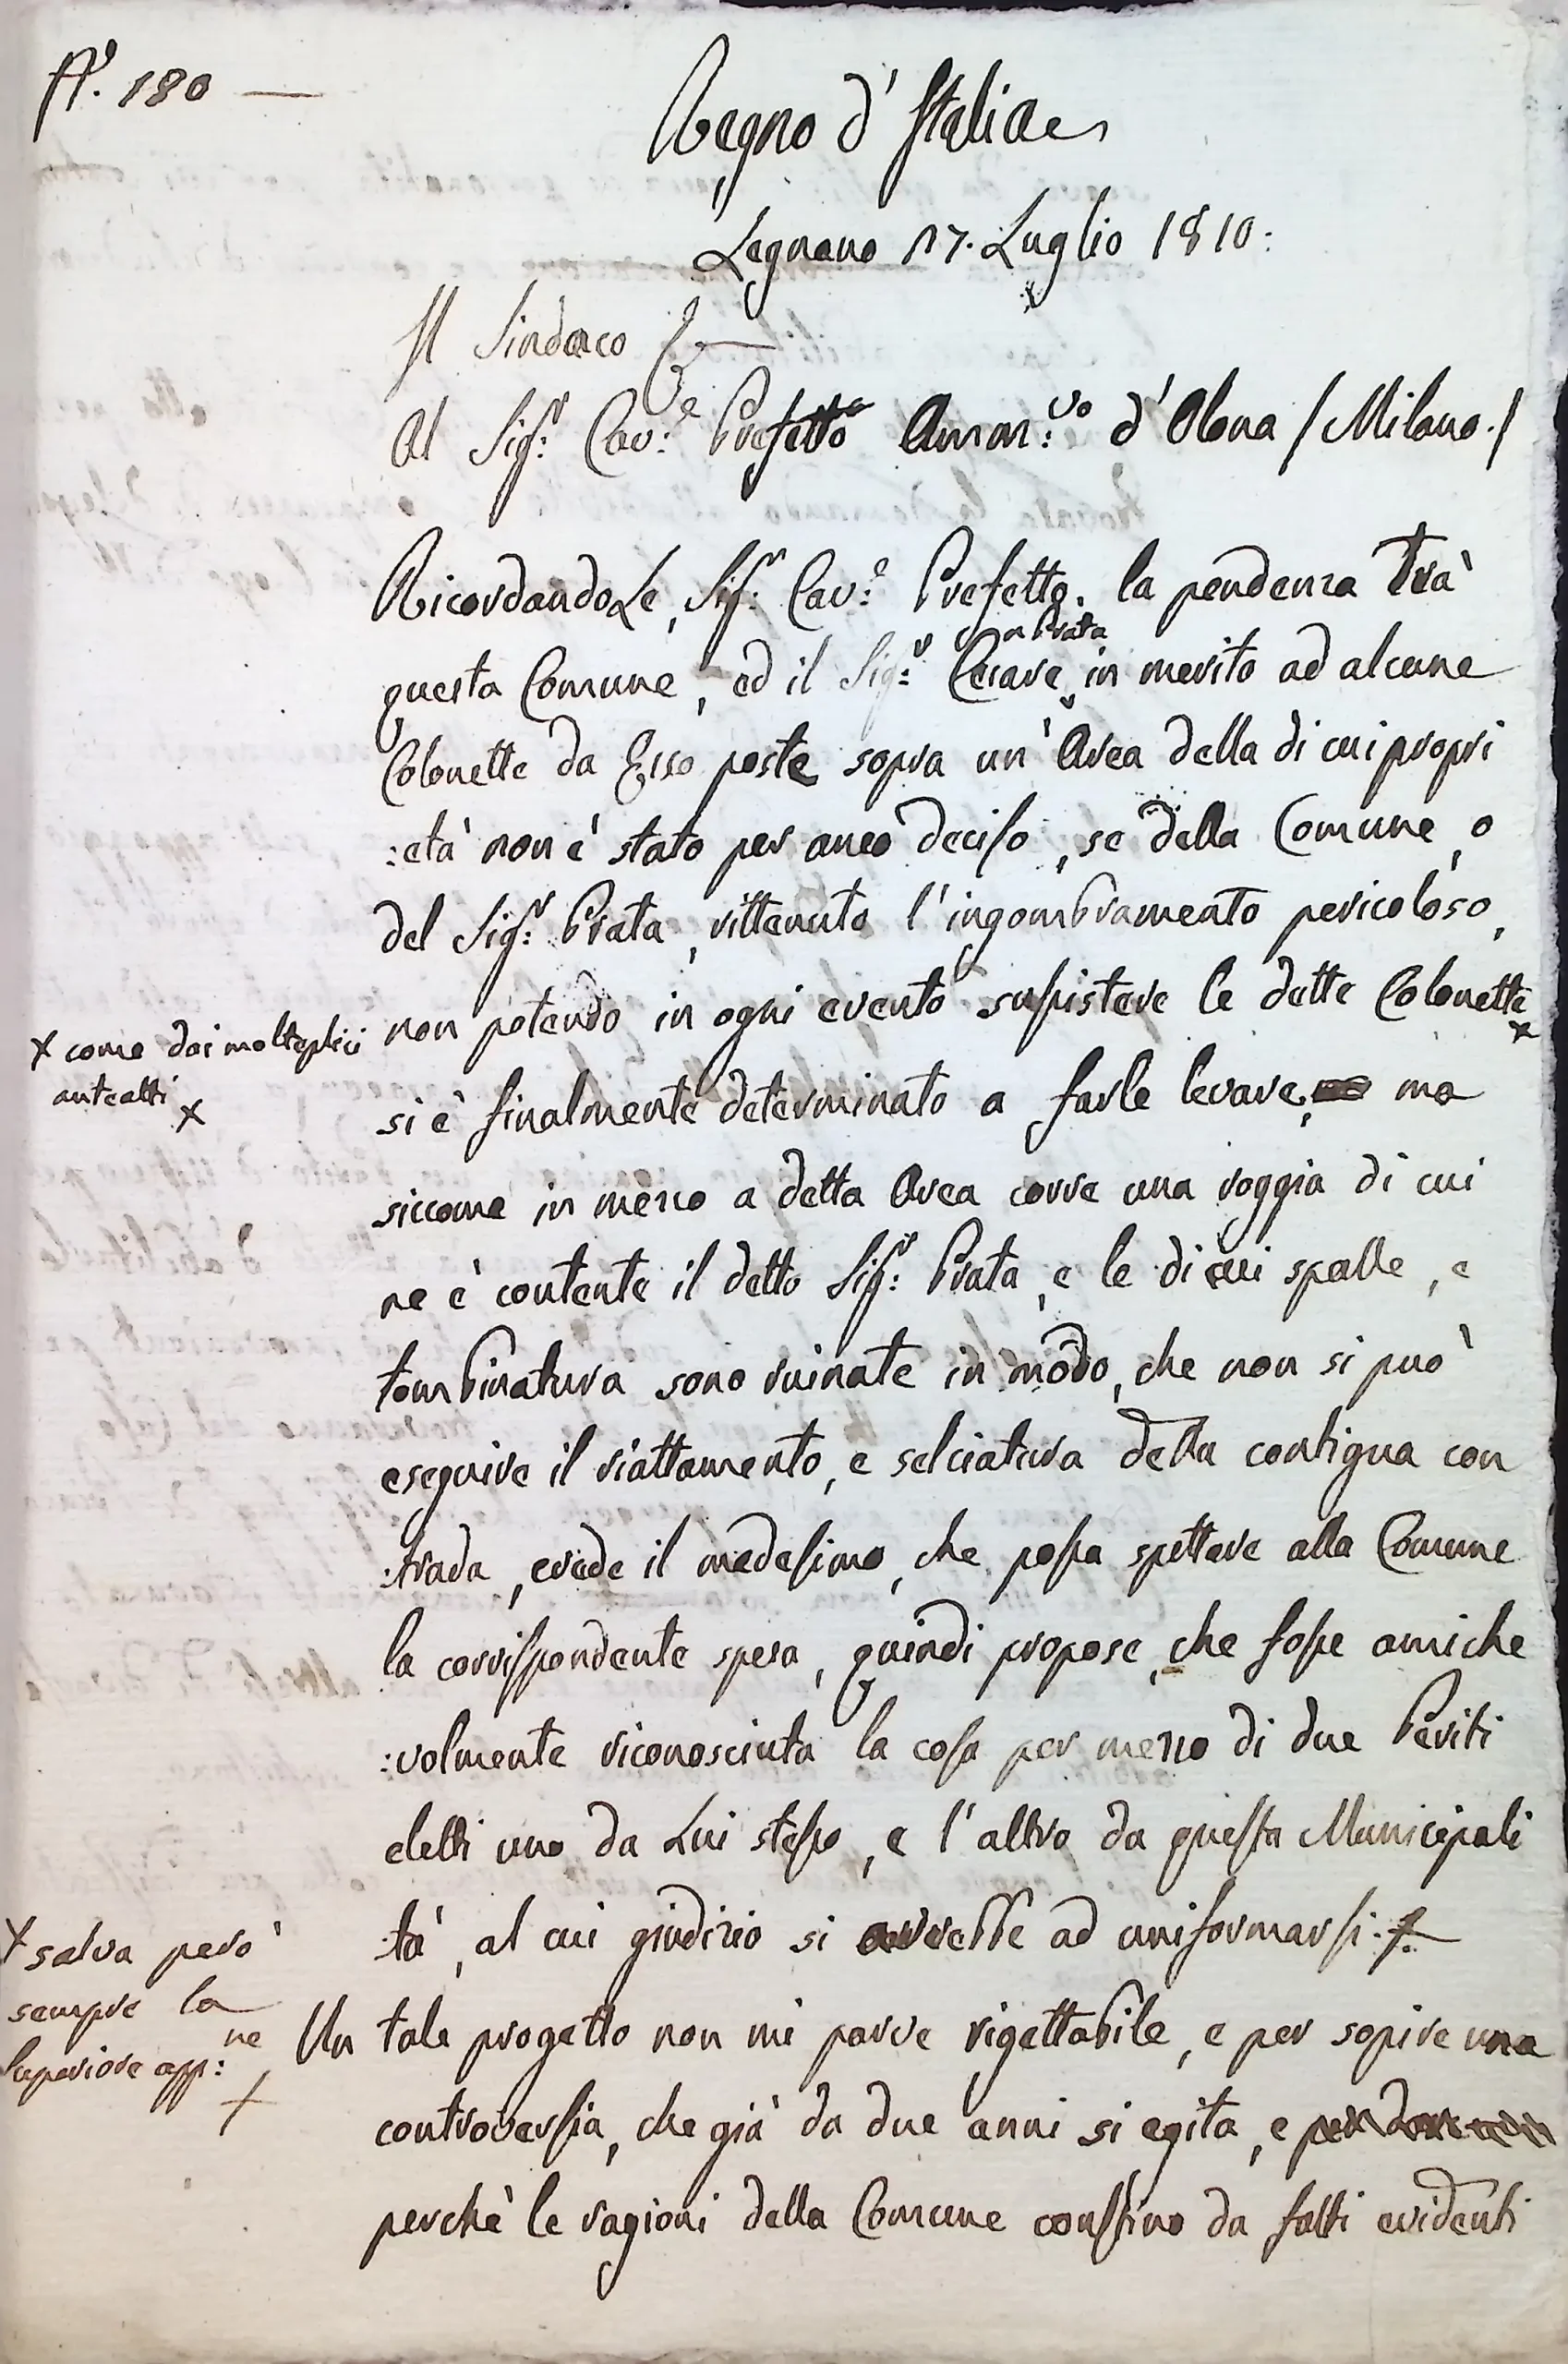 N°. 180 —
Regno d'Italia
Legnano 17. Luglio 1810:
Il Sindaco
Al Sig.r Cav.e Prefetto Amm:vo d'Olona /Milano./
RicordandoLe, Sig.r Cav.e Prefetto. la pendenza trà
questa Comune, ed il Sig.r Cesare Prata in merito ad alcune
Colonette da Esso poste sopra un' Area della di cui propri
:età non è stato per anco deciso, se della Comune, o
del Sig.r Prata, rittenuto l'ingombramento pericoloso,
non potendo in ogni evento sussistere le dette Colonette x
x come dai molteplici
anteatti x
si è finalmente determinato a farle levare; ma
siccome in mezzo a detta Area corre una roggia di cui
ne è contente il detto Sig.r Prata, e le di cui spalle, e
tombinatura sono ruinate in modo, che non si può
eseguire il riattamento, e selciatura della contigua con
:trada, crede il medesimo, che possa spettare alla Comune
la corrispondente spesa, quindi propose, che fosse amiche
:volmente riconosciuta la cosa per mezzo di due Periti
eletti uno da Lui stesso, e l'altro da questa Municipali
:tà, al cui giudizio si avrebbe ad uniformarsi. x
x salva però
sempre la
superiore app:ne
x
Un tale progetto non mi parve rigettabile, e per sopire una
controversia, che già da due anni si agita, e
perchè le ragioni della Comune constino da fatti evidenti